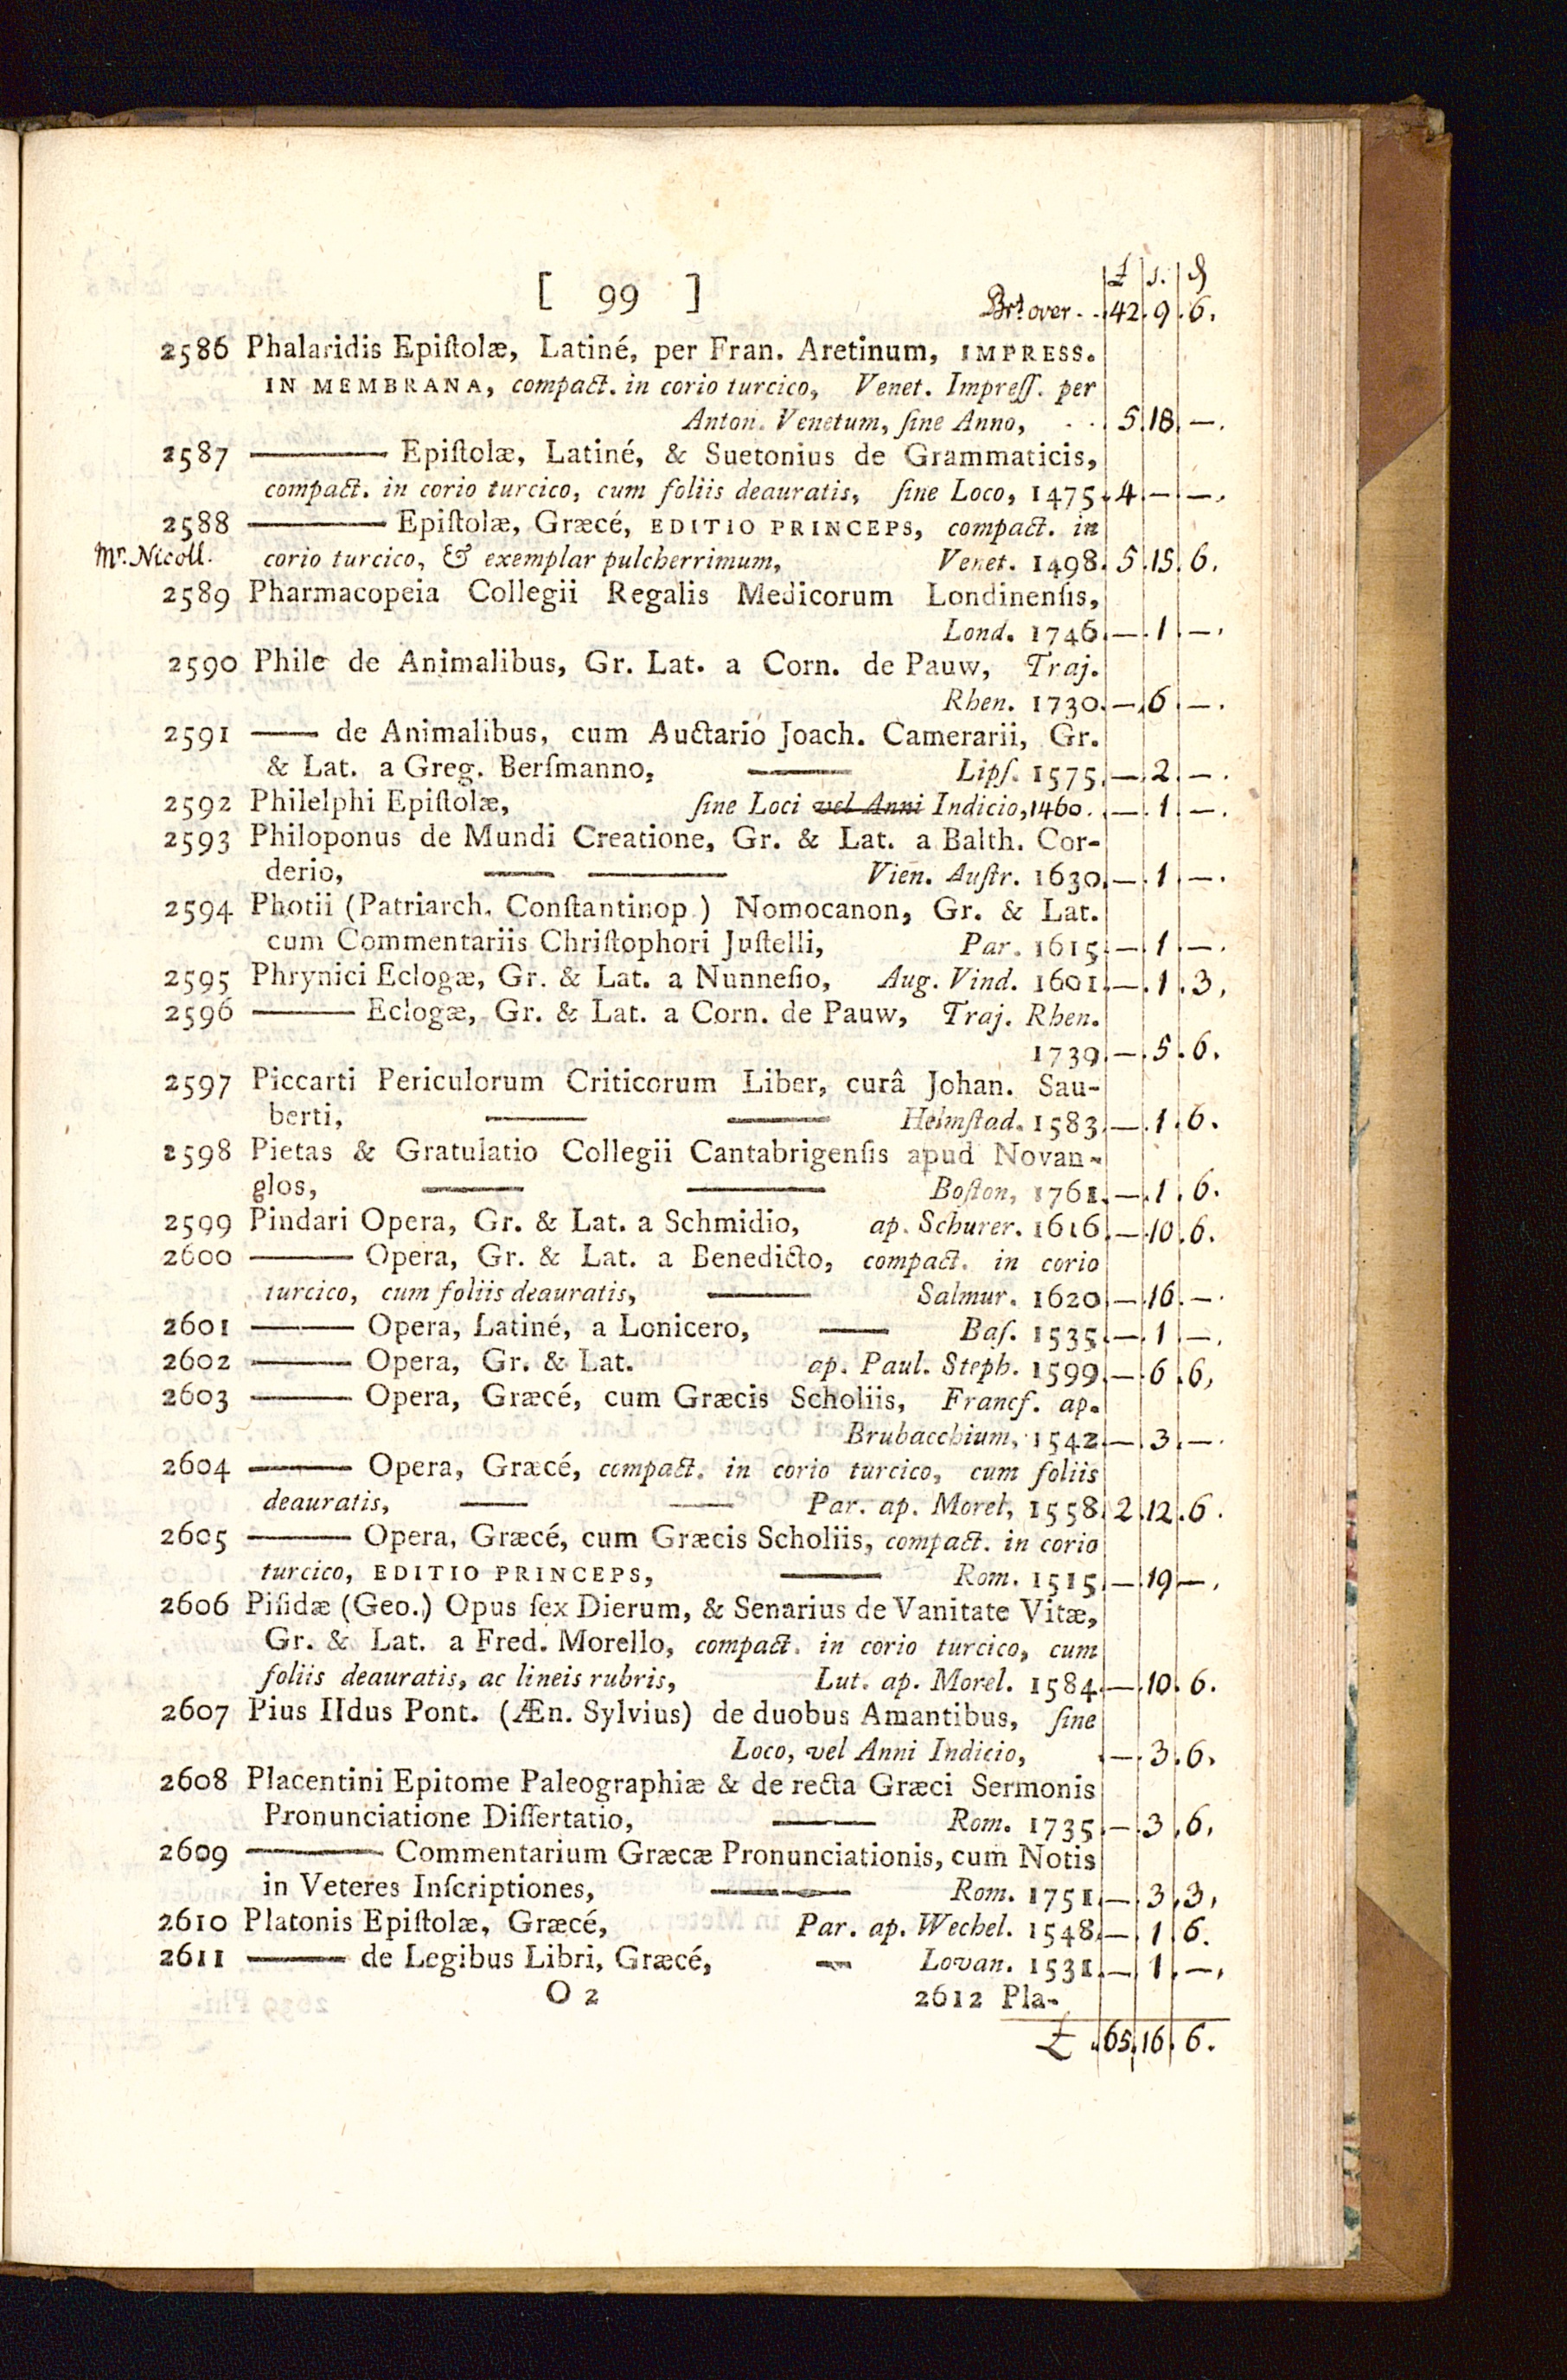 £ s. d
[ 99 ]
Brt over - - 42. 9. 6.
2586 Phalaridis Epiſtolæ, Latiné, per Fran. Aretinum, IMPRESS.
IN MEMBRANA, compact. in corio turcico, Venet. Impreſſ. per
Anton. Venetum, ſine Anno, - - 5. 18. —.
2587 ——— Epiſtolæ, Latiné, & Suetonius de Grammaticis,
compact. in corio turcico, cum foliis deauratis, ſine Loco, 1475. 4. —. —.
2588 ——— Epiſtolæ, Græcé, EDITIO PRINCEPS, compact. in
Mr. Nicoll. corio turcico, & exemplar pulcherrimum, Venet. 1498. 5. 15. 6.
2589 Pharmacopeia Collegii Regalis Medicorum Londinenſis,
Lond. 1746. —. 1. —.
2590 Phile de Animalibus, Gr. Lat. a Corn. de Pauw, Traj.
Rhen. 1730. —. 6. —.
2591 —— de Animalibus, cum Auctario Joach. Camerarii, Gr.
& Lat. a Greg. Berſmanno, —— Lipſ. 1575. —. 2. —.
2592 Philelphi Epiſtolæ, ſine Loci vel Anni Indicio, 1460. . —. 1. —.
2593 Philoponus de Mundi Creatione, Gr. & Lat. a Balth. Cor-
derio, —— ——— Vien. Auſtr. 1630. —. 1. —.
2594 Photii (Patriarch. Conſtantinop.) Nomocanon, Gr. & Lat.
cum Commentariis Chriſtophori Juſtelli, Par. 1615. —. 1. —.
2595 Phrynici Eclogæ, Gr. & Lat. a Nunneſio, Aug. Vind. 1601. —. 1. 3.
2596 ——— Eclogæ, Gr. & Lat. a Corn. de Pauw, Traj. Rhen.
1739. —. 5. 6.
2597 Piccarti Periculorum Criticorum Liber, curâ Johan. Sau-
berti, ——— ——— Helmſtad. 1583. —. 1. 6.
2598 Pietas & Gratulatio Collegii Cantabrigenſis apud Novan-
glos, ——— ——— Boſton, 1761. —. 1. 6.
2599 Pindari Opera, Gr. & Lat. a Schmidio, ap. Schurer. 1616. —. 10. 6.
2600 ——— Opera, Gr. & Lat. a Benedicto, compact. in corio
turcico, cum foliis deauratis, ——— Salmur. 1620. —. 16. —.
2601 ——— Opera, Latiné, a Lonicero, —— Baſ. 1535. —. 1. —.
2602 ——— Opera, Gr. & Lat. ap. Paul. Steph. 1599. —. 6. 6.
2603 ——— Opera, Græcé, cum Græcis Scholiis, Francf. ap.
Brubacchium, 1542. —. 3. —.
2604 ——— Opera, Græcé, compact. in corio turcico, cum foliis
deauratis, —— —— Par. ap. Morel, 1558. 2. 12. 6.
2605 ——— Opera, Græcé, cum Græcis Scholiis, compact. in corio
turcico, EDITIO PRINCEPS, ——— Rom. 1515. —. 19. —.
2606 Piſidæ (Geo.) Opus ſex Dierum, & Senarius de Vanitate Vitæ,
Gr. & Lat. a Fred. Morello, compact. in corio turcico, cum
foliis deauratis, ac lineis rubris, Lut. ap. Morel. 1584. —. 10. 6.
2607 Pius IIdus Pont. (Æn. Sylvius) de duobus Amantibus, ſine
Loco, vel Anni Indicio, . —. 3. 6.
2608 Placentini Epitome Paleographiæ & de recta Græci Sermonis
Pronunciatione Diſſertatio, ——— Rom. 1735. —. 3. 6.
2609 ——— Commentarium Græcæ Pronunciationis, cum Notis
in Veteres Inſcriptiones, ——— Rom. 1751. —. 3. 3.
2610 Platonis Epiſtolæ, Græcé, Par. ap. Wechel. 1548. —. 1. 6.
2611 ——— de Legibus Libri, Græcé, — Lovan. 1531. —. 1. —.
O 2 2612 Pla-
£ . 65. 16. 6.